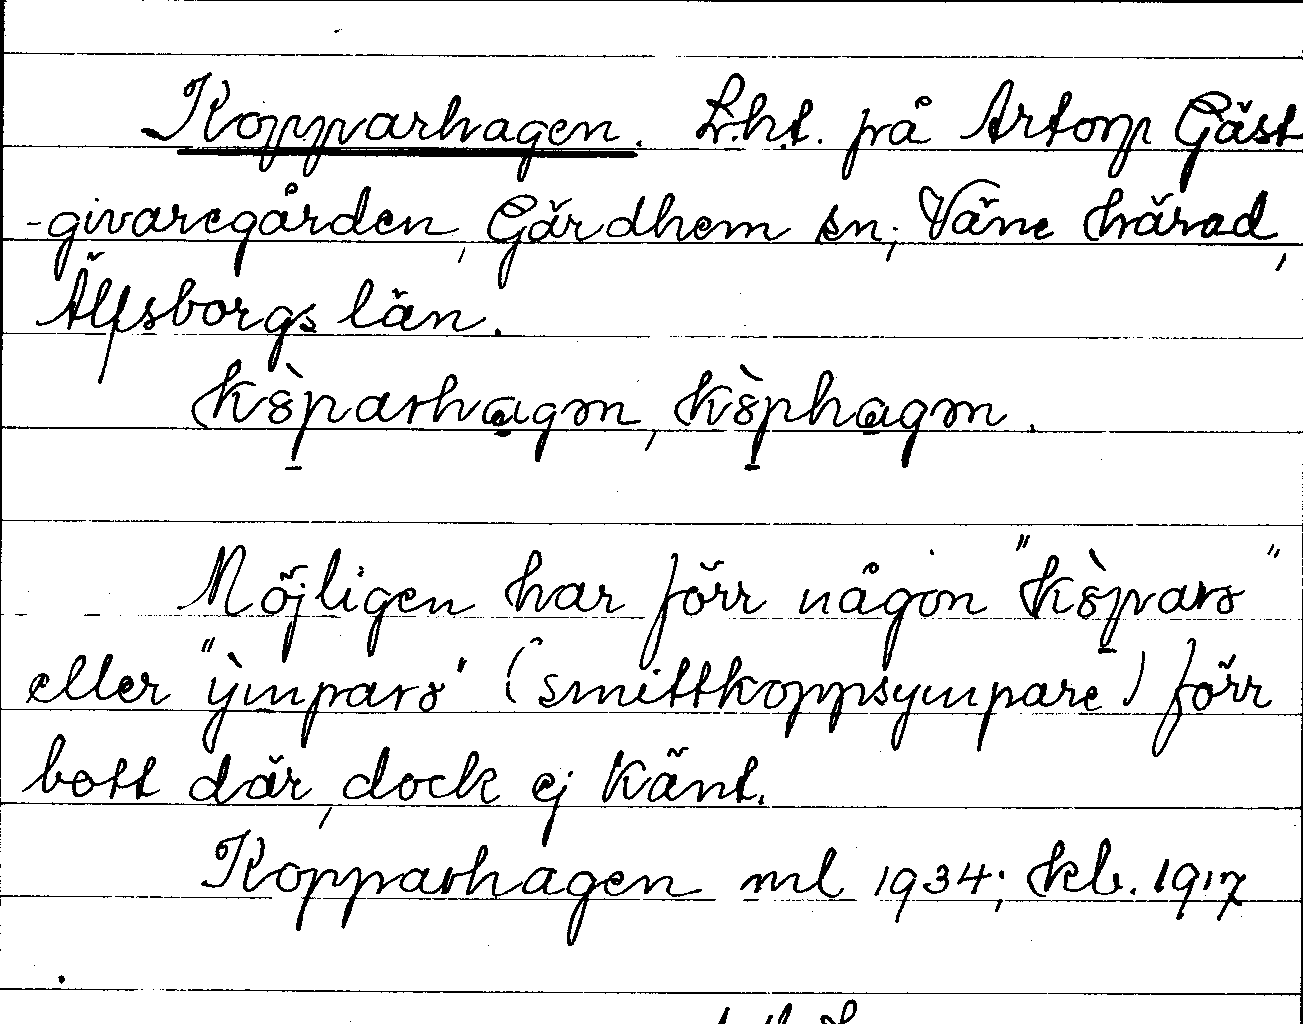 Kopparhagen. L.ht. på Artorp Gäst
-givaregården, Gärdhem sn; Väne härad,
Älfsborgs län.
Möjligen har förr någon "
eller " " (smittkoppsympare) förr
bott där, dock ej känt.
Kopparhagen ml 1934; kb. 1917